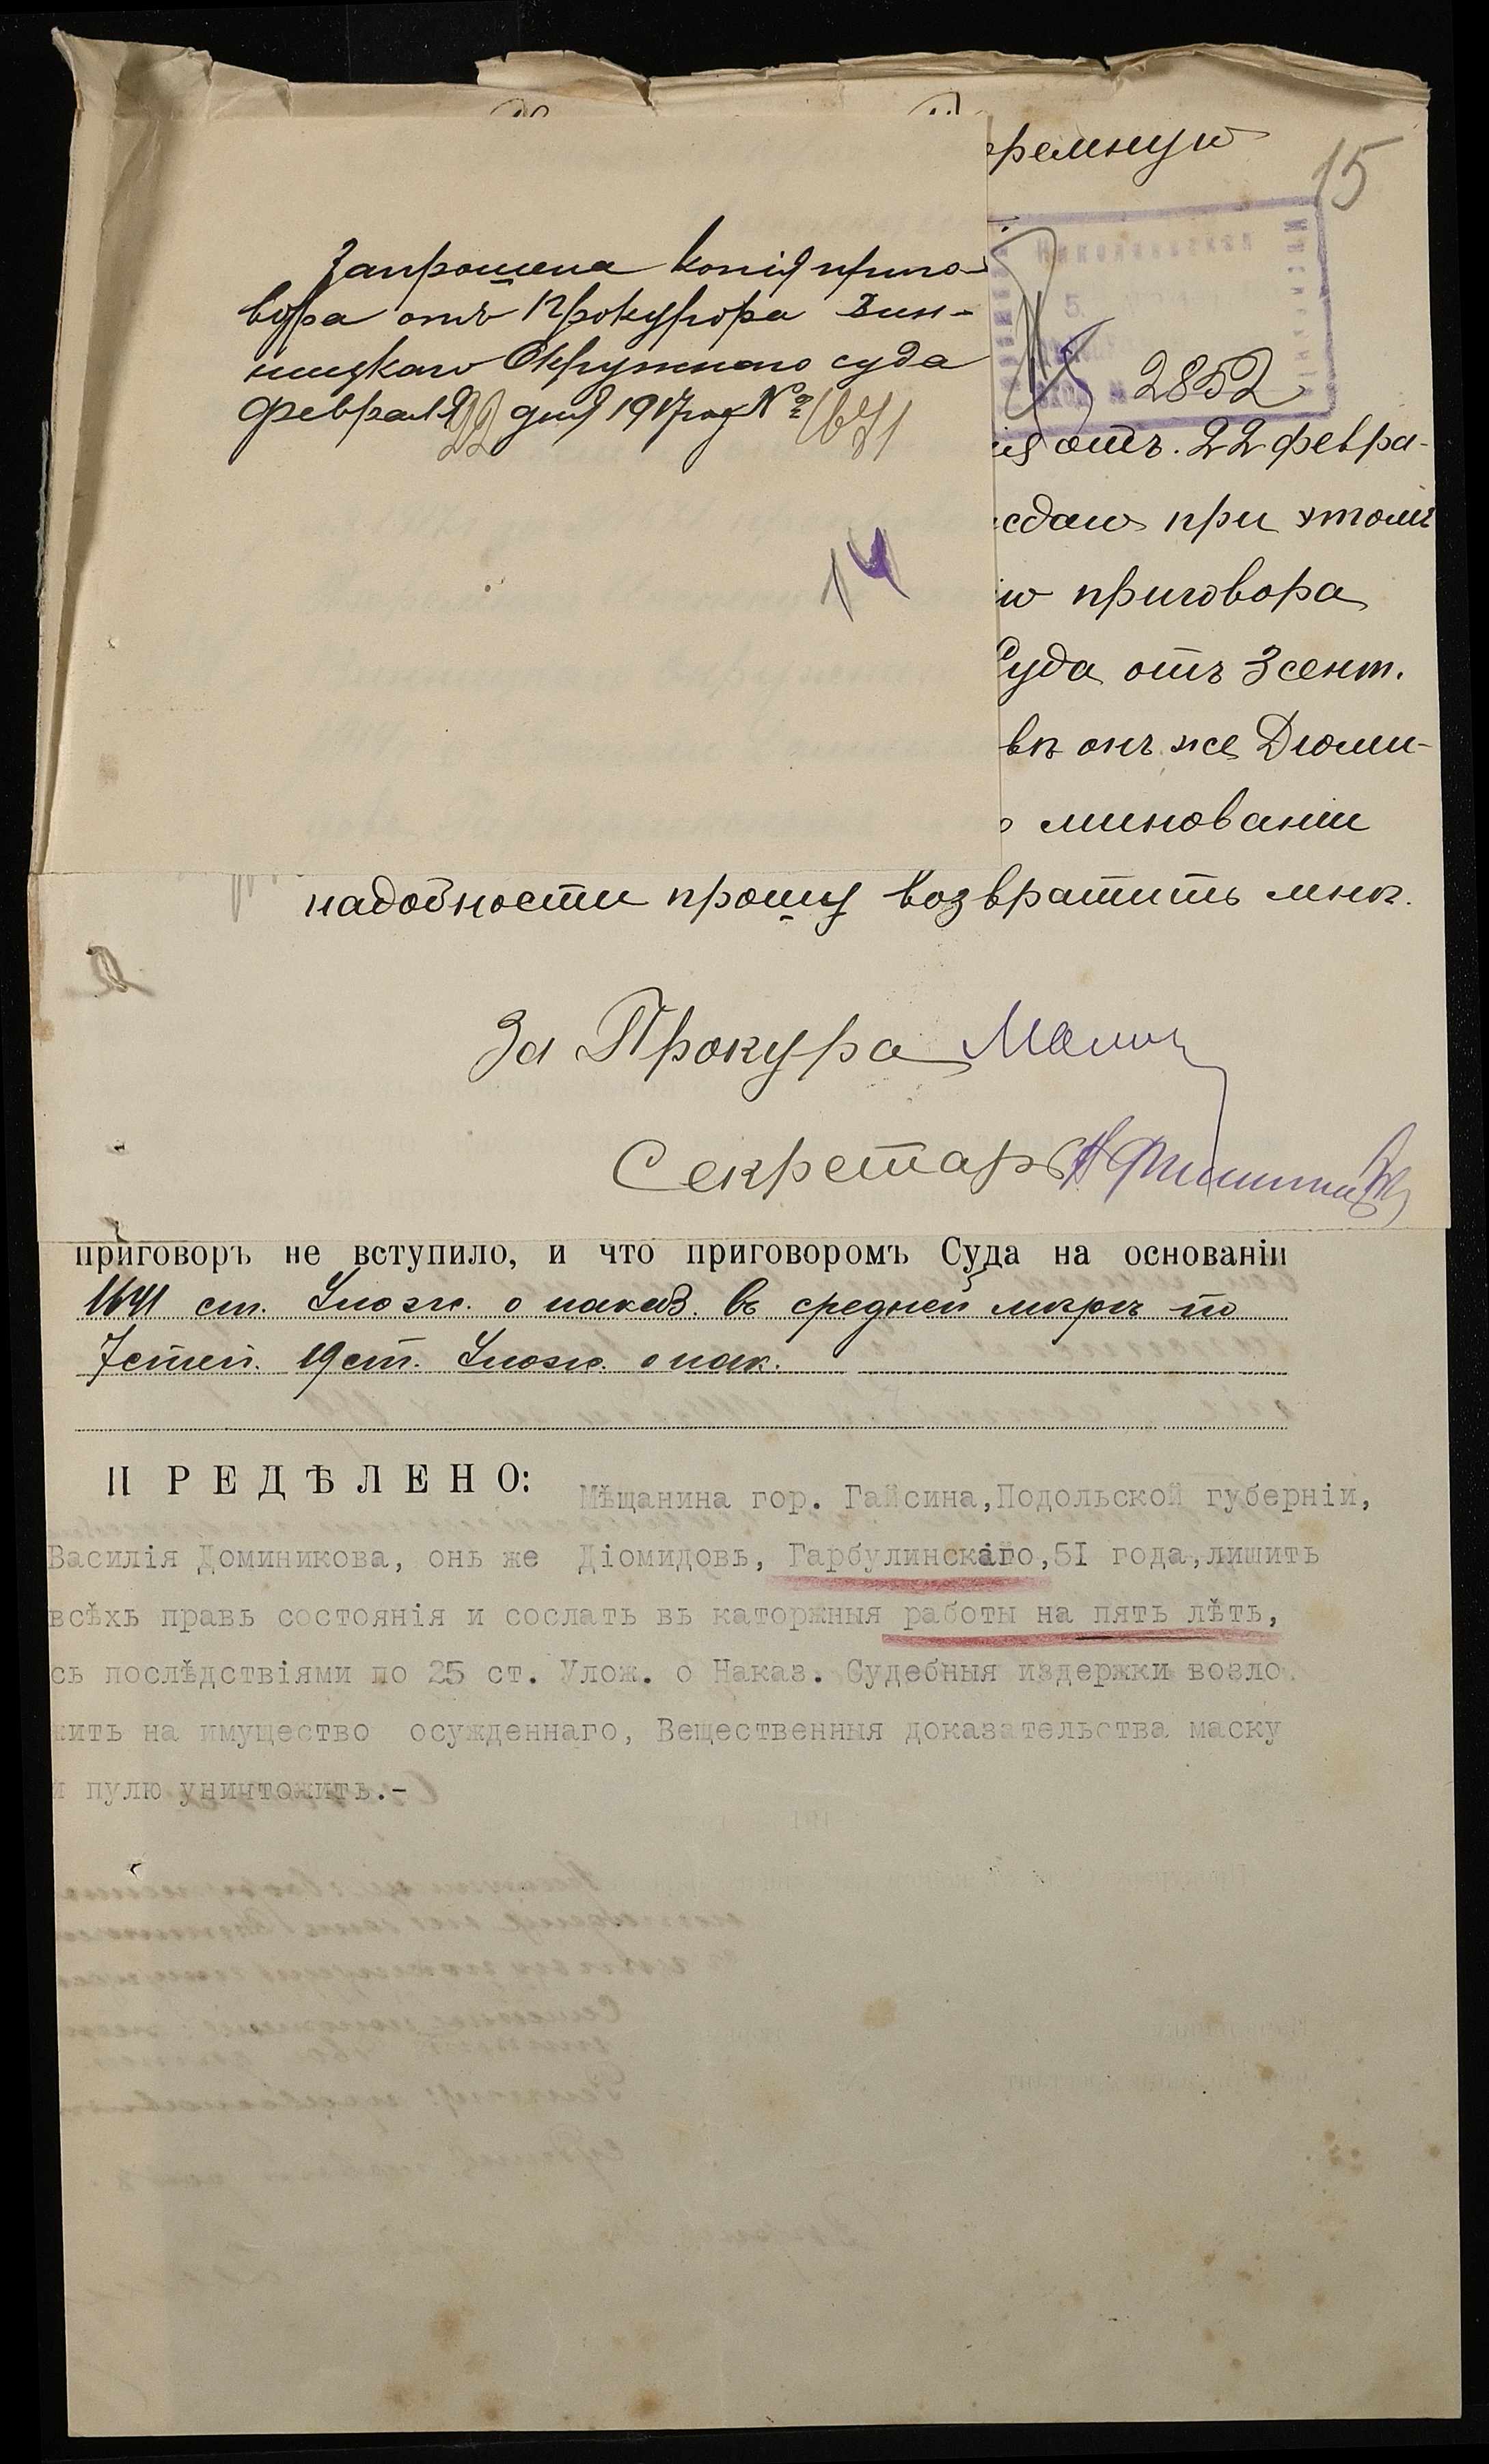 Запрошена копія приго-
вора отъ Прокурора Вин-
ницкаго Окружнаго суда
февраля 22 дня 1917 год №1671
14
15
ремную
Николаевской
2852
отъ. 22 февра-
при этомъ
приговора
Суда отъ 3 сент.
въ онъ же Дюми-
миновании
надобности прошу возвратить мнѣ.
За Прокурора
Секретарь
приговоръ не вступило, и что приговоромъ Суда на основаніи
1641 ст. Улож. о наказ. въ средней мѣрѣ по
7 степ. 19 ст. Улож. о нак.
ПРЕДѢЛЕНО: Мѣщанина гор. Гайсина,Подольской губерніи,
Василія Доминикова, онъ же Діомидовъ, Гарбулинскаго,51 года,лишить
всѣхъ правъ состоянія и сослать въ каторжныя работы на пять лѣтъ,
съ послѣдствіями по 25 ст. Улож. о Наказ. Судебныя издержки возло
жить на имущество осужденнаго, Вещественныя доказательства маску
и пулю уничтожить.-